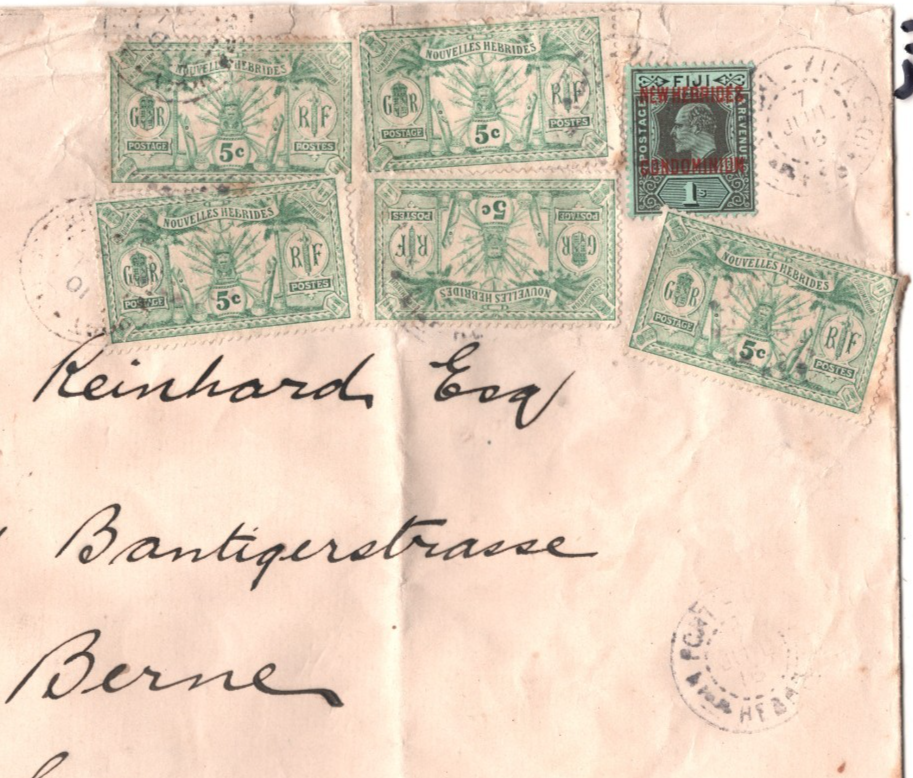 NOUVELLES HEBRIDES
G R
R F
POSTAGE
5c
POSTES
NOUVELLES HEBRIDES
G R
R F
POSTAGE
5c
POSTES
FIJI
NEW HEBRIDES
POSTAGE
& REVENUE
CONDOMINIUM
1s
VILA
7
15
NOUVELLES HEBRIDES
G R
R F
POSTAGE
5c
POSTES
NOUVELLES HEBRIDES
G R
R F
POSTAGE
5c
POSTES
NOUVELLES HEBRIDES
G R
R F
POSTAGE
5c
POSTES
Reinhard Esq
Bantigerstrasse
Berne
PORT
15
HEBR